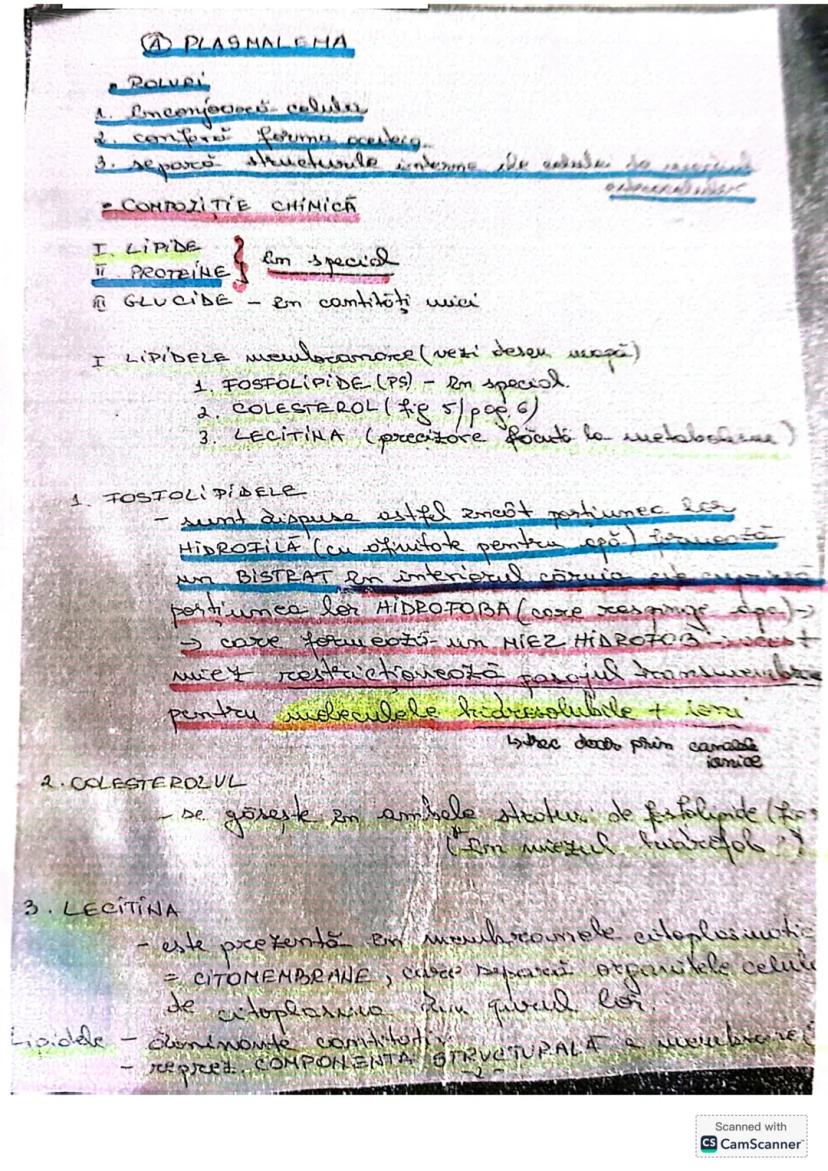 Ⓐ PLASMALEMA
• ROLURI
1. înconjoară celula
2. conferă forma acesteia
3. separă structurile interne ale celulei de mediul
extracelular
• COMPOZIȚIE CHIMICĂ
I. LIPIDE
II. PROTEINE } în special
III GLUCIDE – în cantități mici
I LIPIDELE membranare (vezi desen
1. FOSFOLIPIDE (PS) – în special.
2. COLESTEROL (fig 5/pag. 6)
3. LECITINA (precizare făcută la metabolism)
1. FOSFOLIPIDELE
– sunt dispuse astfel încât porțiunea lor
HIDROFILĂ (cu afinitate pentru apă) formează
un BISTRAT în interiorul căruia este cuprinsă
porțiunea lor HIDROFOBA (care respinge apa) →
→ care formează un MIEZ HIDROFOB acest
miez restricționează pasajul transmembra
pentru moleculele hidrosolubile + ioni
↳ trec doar prin canale
ionice
2. COLESTEROLUL
– se găsește în ambele straturi de fosfolipide
(în miezul hidrofob
3. LECITINA
– este prezentă în membranele citoplasmatic
= CITOMEMBRANE, care separă organitele celula
de citoplasma din jurul lor.
Lipidele – dominante cantitativ
– reprez. COMPONENTA STRUCTURALĂ a membranei
Scanned with
CS CamScanner